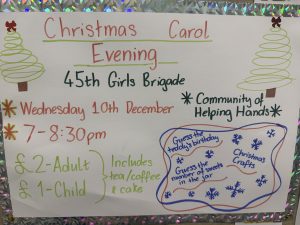 Christmas Carol
Evening
45th Girls Brigade
Wednesday 10th December
7-8:30pm
£2-Adult
£1-Child
Includes
tea/coffee
& cake
Community of
Helping Hands
Guess the
teddy's birthday
Christmas
Crafts
Guess the
number of sweets
in the jar